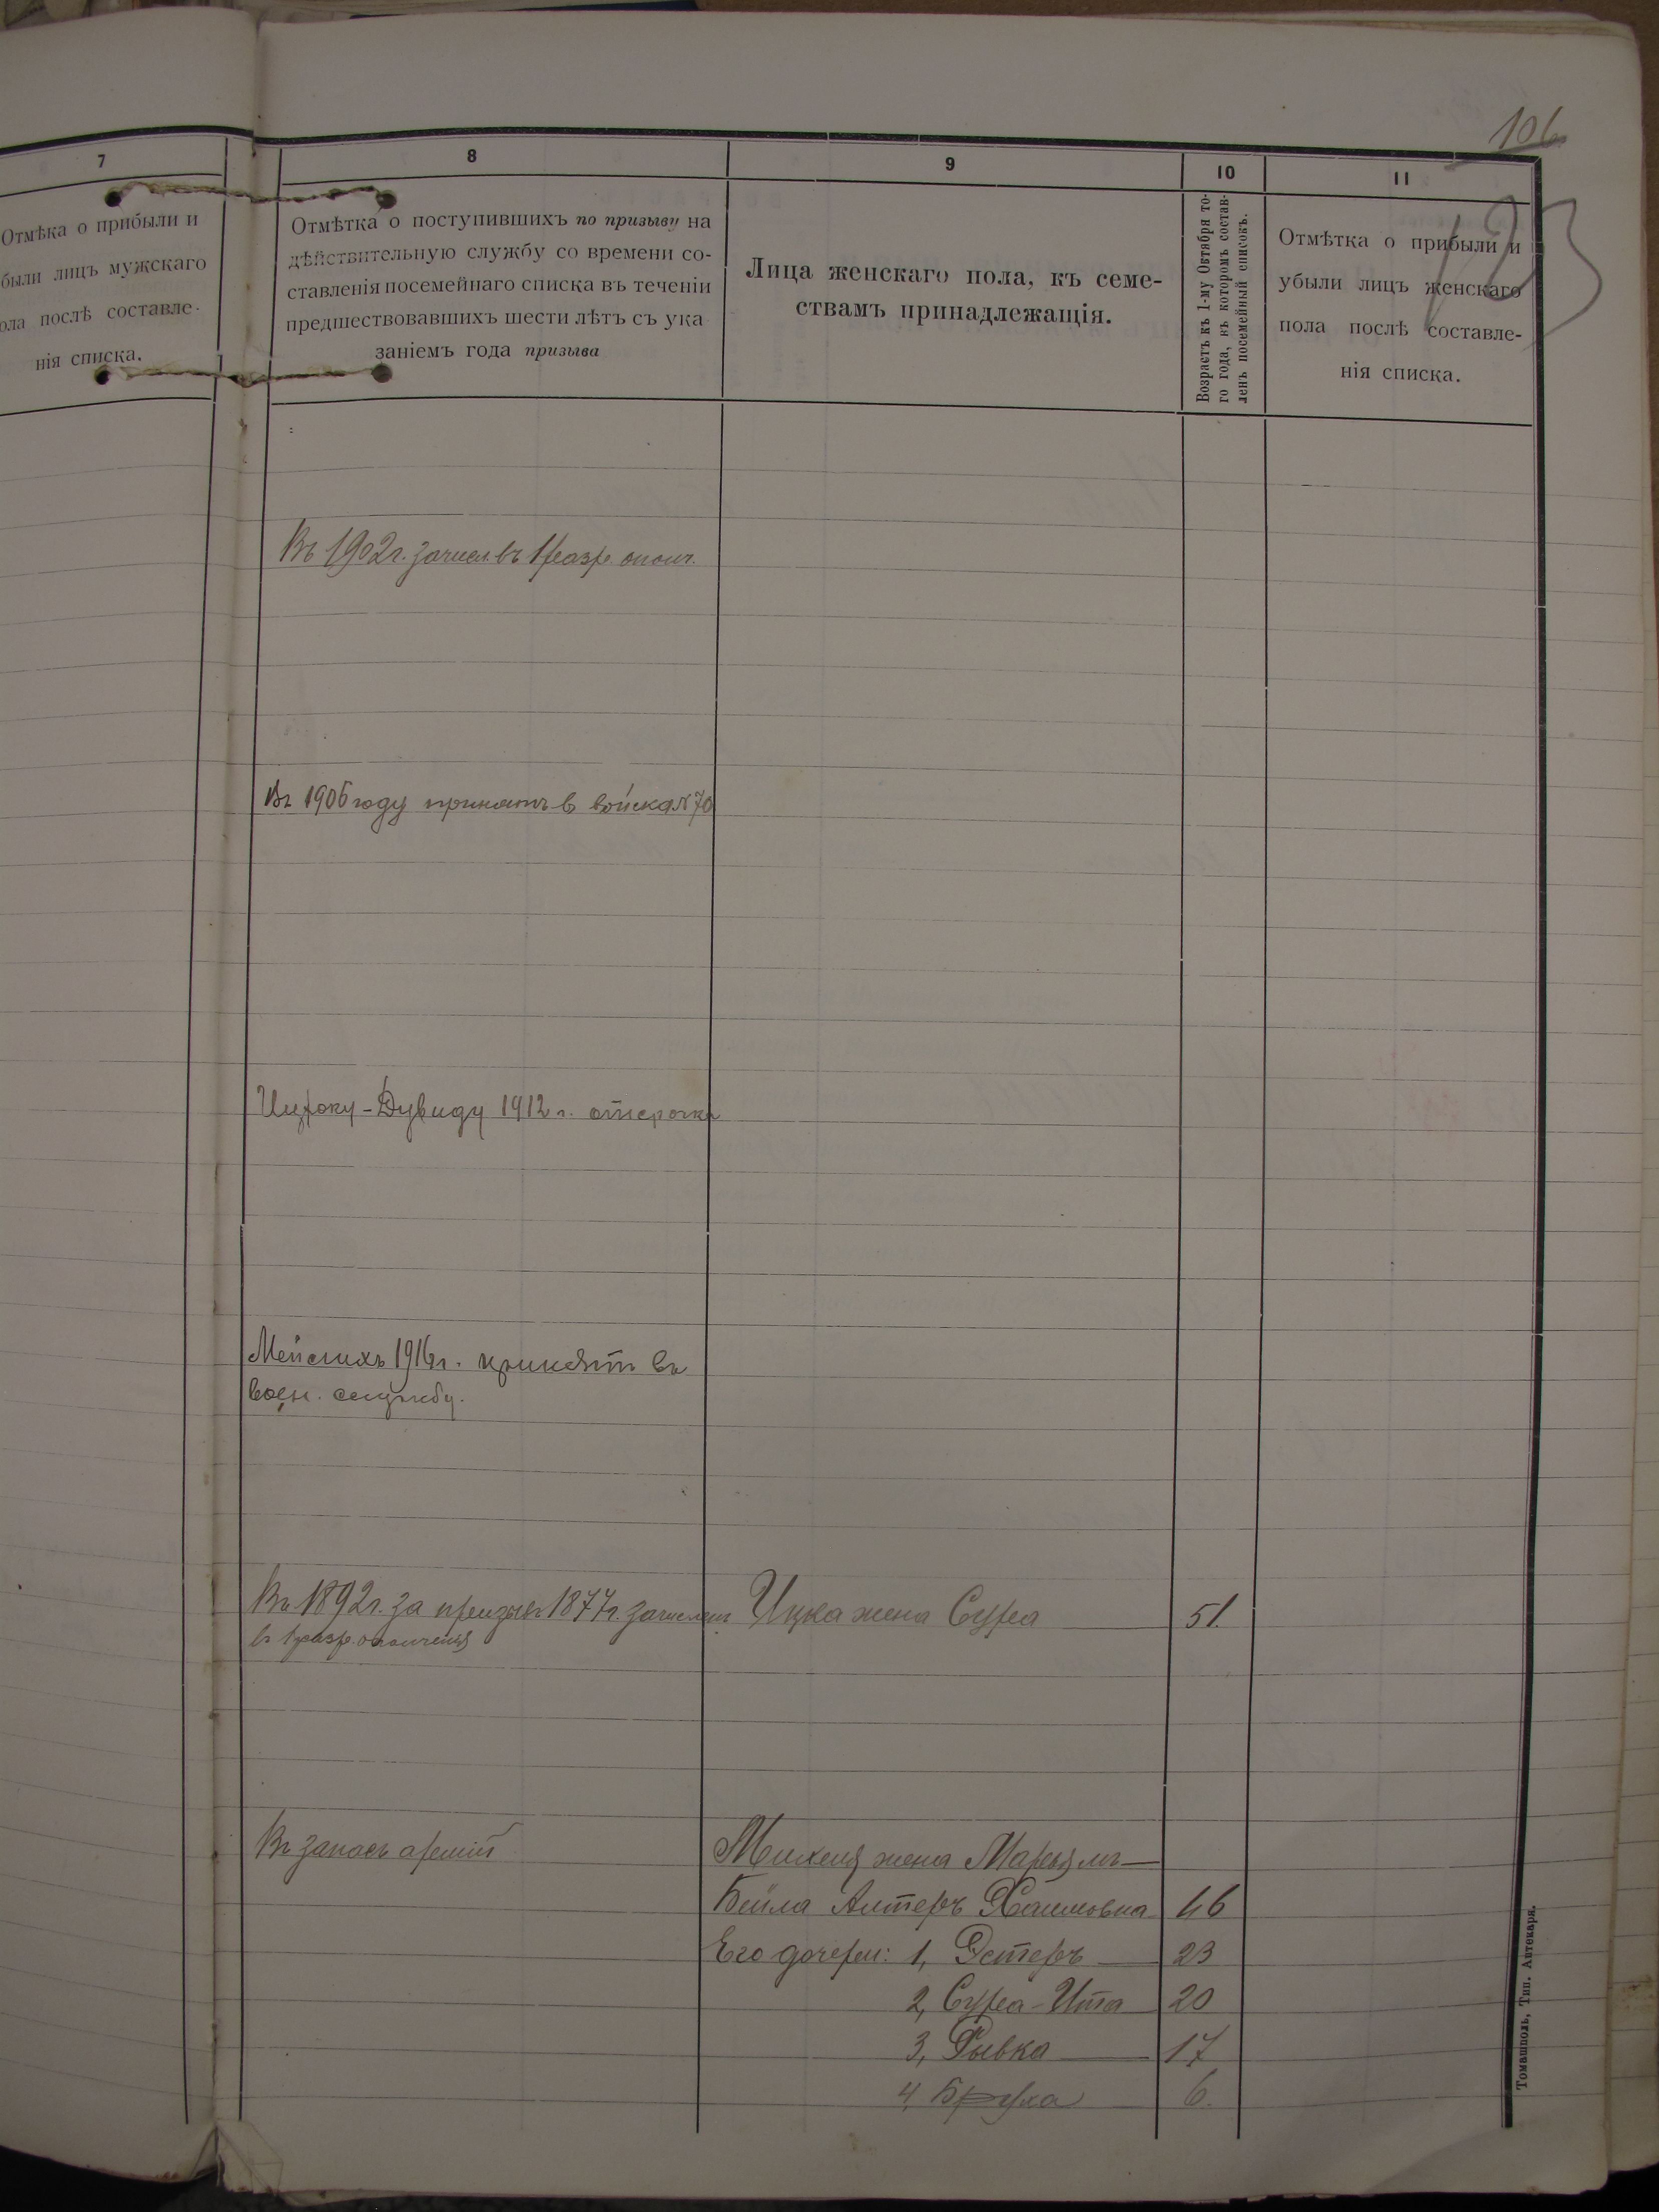 106
123
7
8
9
10
11
Отмѣка о прибыли и
были лицъ мужскаго
ола послѣ составле-
нія списка.
Отмѣтка о поступившихъ по призыву на
дѣйствительную службу со времени со-
ставленія посемейнаго списка въ теченіи
предшествовавшихъ шести лѣтъ съ ука
заніемъ года призыва
Лица женскаго пола, къ семе-
ствамъ принадлежащія.
Возрастъ къ 1-му Октября то-
го года, въ которомъ состав-
ленъ посемейный списокъ.
Отмѣтка о прибыли и
убыли лицъ женскаго
пола послѣ составле-
нія списка.
Въ 1902 г. зачисл. въ 1 разр. ополч.
Въ 1906 году принятъ в войска № 70
Ицхоку-Дувиду 1912 г. отсрочка
1916 г. принятъ въ
воен. службу.
Въ 1892 г. за призывъ 1877 г. зачисленъ
въ 1 разр. ополченія
Ицка жена Сура 51.
Въ запасъ арміи
Михеля жена Марьямъ—
Бейла Алтеръ Хаимовна 46
Его дочери: 1, Эстеръ 23
2, Сура-Ита 20
3, Рывка 17
4, Бруха 6.
Томашполь, Тип. Аптекаря.